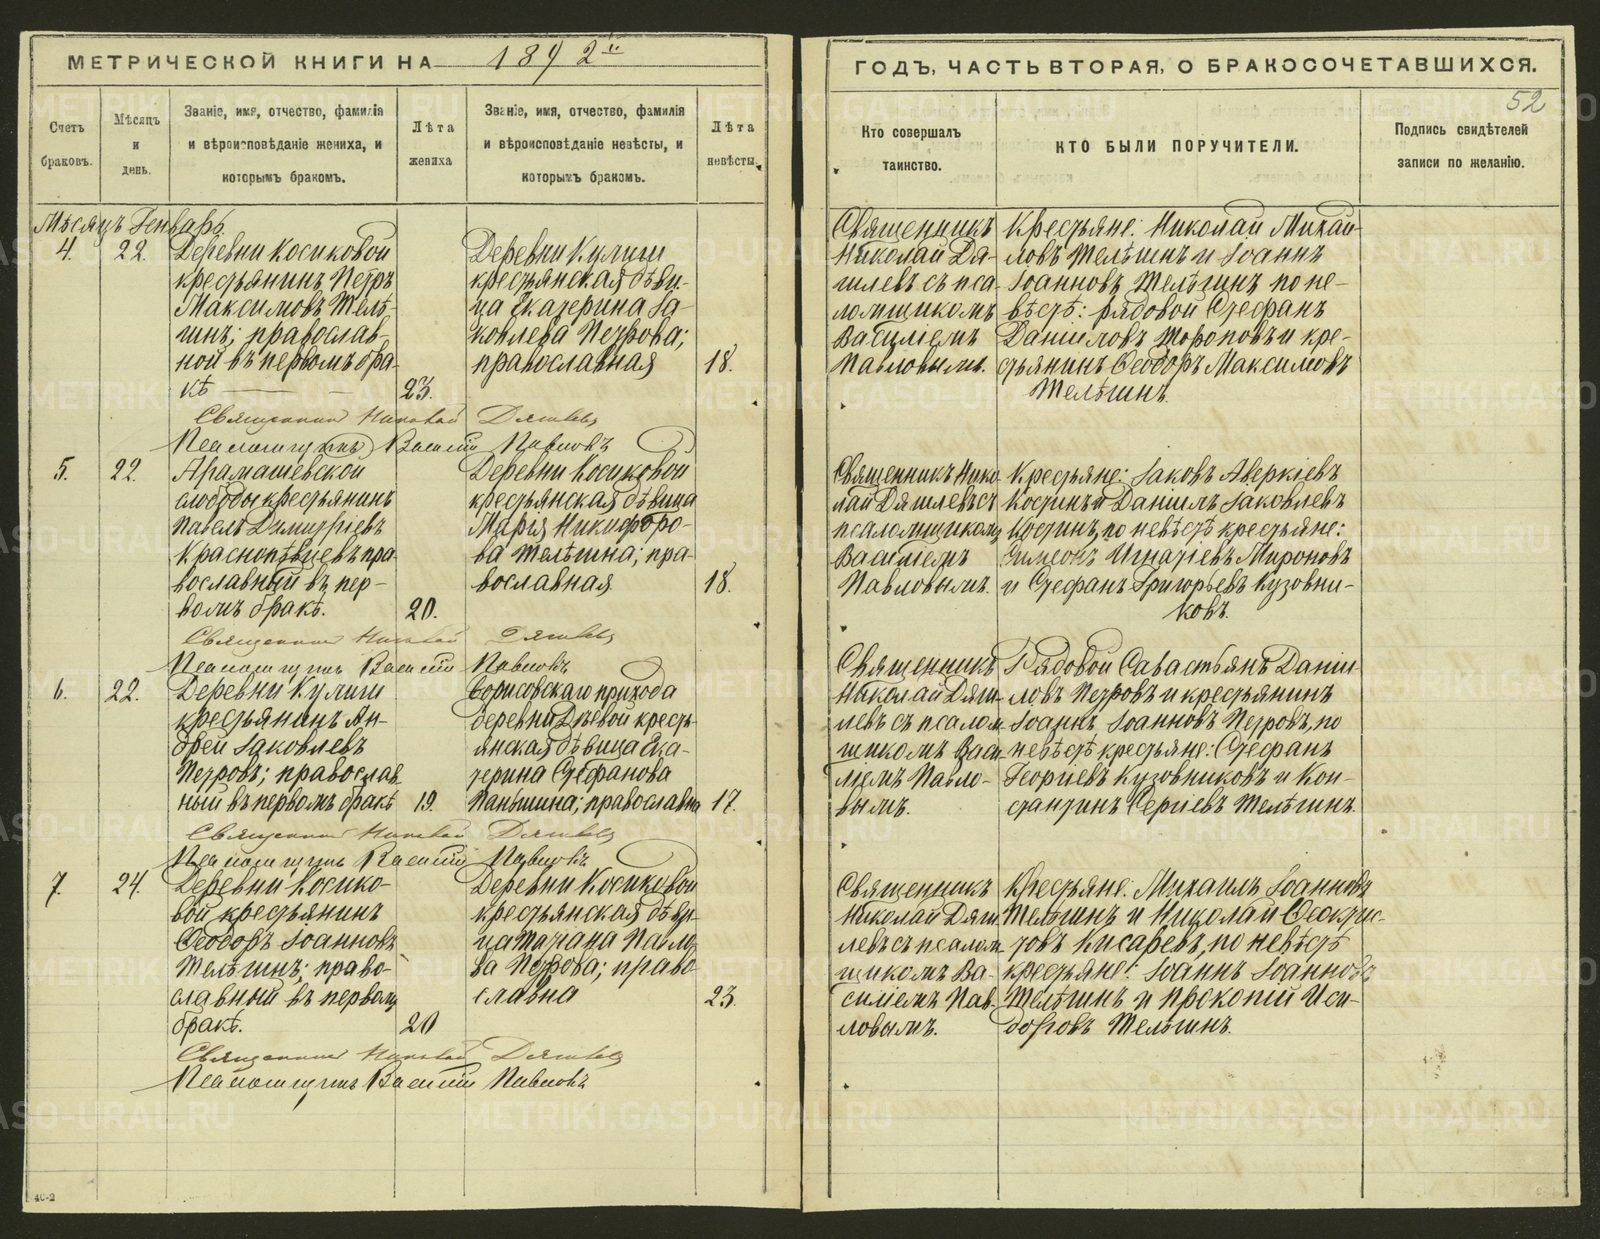 МЕТРИЧЕСКОЙ КНИГИ НА 1892й
ГОДЪ, ЧАСТЬ ВТОРАЯ, О БРАКОСОЧЕТАВШИХСЯ.
52
Счетъ браковъ.
Мѣсяцъ и день.
Званіе, имя, отчество, фамилія
и вѣроисповѣданіе жениха, и
которымъ бракомъ.
Лѣта жениха
Званіе, имя, отчество, фамилія
и вѣроисповѣданіе невѣсты, и
которымъ бракомъ.
Лѣта невѣсты.
Кто совершалъ
таинство.
КТО БЫЛИ ПОРУЧИТЕЛИ.
Подпись свидѣтелей
записи по желанію.
Мѣсяцъ Генварь.
4.
22.
Деревни Косиковой
крестьянинъ Петръ
Максимовъ Телѣ-
гинъ; православ-
ной въ первомъ бра-
кѣ
23.
Деревни Кулиги
крестьянская дѣви-
ца Екатерина Іа-
ковлева Петрова;
православная
18.
Священникъ
Николай Дя-
гилевъ съ пса-
ломщикомъ
Василіемъ
Павловымъ.
Крестьяне: Николай Михаи-
ловъ Телѣгинъ и Іоаннъ
Іоанновъ Телѣгинъ по не-
вѣстѣ: рядовой Стефанъ
Даниловъ Тороповъ и кре-
стьянинъ Ѳеодоръ Максимовъ
Телѣгинъ.
Священникъ Николай Дягилевъ
Псаломщикъ Василій Павловъ
5.
22.
Арамашевской
слободы крестьянинъ
Павелъ Димитріевъ
Краснопѣвцевъ пра-
вославный въ пер-
вомъ бракѣ.
20.
Деревни Косиковой
крестьянская дѣвица
Марія Никифоро-
ва Телѣгина; пра-
вославная
18.
Священникъ Нико-
лай Дягилевъ съ
псаломщикомъ
Василіемъ
Павловымъ.
Крестьяне: Іаковъ Аверкіевъ
Костинъ и Даніилъ Іаковлевъ
Костинъ, по невѣстѣ крестьяне:
Симеонъ Игнатіевъ Мироновъ
и Стефанъ Григорьевъ Кузовни-
ковъ.
Священникъ Николай Дягилевъ
Псаломщикъ Василій Павловъ
6.
22.
Деревни Кулиги
крестьянинъ Ан-
дрей Іаковлевъ
Петровъ; православ
ный въ первомъ бракѣ
19.
Борисовскаго прихода
деревни
крестьянская дѣвица Ека-
терина Стефанова
Паньшина; православна
17.
Священникъ
Николай Дяги-
левъ съ псалом-
щикомъ Васи-
ліемъ Павло-
вымъ.
Рядовой Савастьянъ Даніи-
ловъ Петровъ и крестьянинъ
Іоаннъ Іоанновъ Петровъ, по
невѣстѣ крестьяне: Стефанъ
Георгіевъ Кузовниковъ и Кон-
стантинъ Сергіевъ Телѣгинъ.
Священникъ Николай Дягилевъ
Псаломщикъ Василій Павловъ
7.
24.
Деревни Косико-
вой крестьянинъ
Ѳеодоръ Іоанновъ
Телѣгинъ; право-
славный въ первомъ
бракѣ.
20
Деревни Косиковой
крестьянская дѣви-
ца Татіана Павло-
ва Петрова; право-
славна
23.
Священникъ
Николай Дяги-
левъ съ псалом-
щикомъ Ва-
силіемъ Пав-
ловымъ.
Крестьяне: Михаилъ Іоанновъ
Телѣгинъ и Николай Ѳеоктис-
товъ Кисаревъ, по невѣстѣ
крестьяне: Іоаннъ Іоанновъ
Телѣгинъ и Прокопій Иси-
доровъ Телѣгинъ.
Священникъ Николай Дягилевъ
Псаломщикъ Василій Павловъ
40-2
METRIKI.GASO-URAL.RU